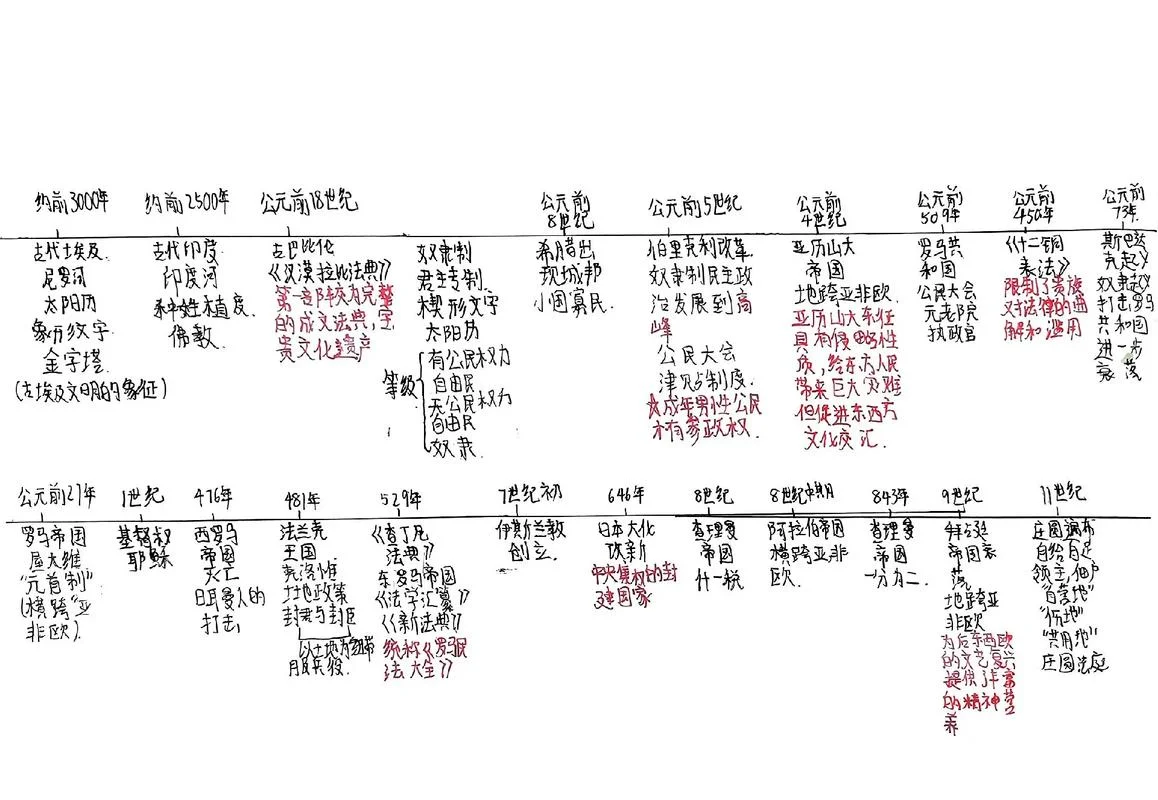 约前3000年
古代埃及.
尼罗河
太阳历
象形文字
金字塔.
(古埃及文明的象征)
约前2500年
古代印度
印度河
种姓制度.
佛教.
公元前18世纪
古巴比伦
《汉漠拉比法典》
第一部较为完整
的成文法典,宝
贵文化遗产
奴隶制
君主专制.
楔形文字
太阳历
等级
有公民权力
自由民
无公民权力
自由民
奴隶.
公元前
8世纪
希腊出
现城邦
小国寡民.
公元前5世纪
伯里克利改革.
奴隶制民主政
治发展到高
峰
公民大会
津贴制度.
成年男性公民
才有参政权.
公元前
4世纪
亚历山大
帝国
地跨亚非欧.
亚历山大东征
具有侵略性
质,给东方人民
带来巨大灾难
但促进东西方
文化交汇.
公元前
509年
罗马共
和国
公民大会
元老院
执政官
公元前
450年
《十二铜
表法》
限制了贵族
对法律的曲
解和滥用
公元前
73年.
斯巴达
克起义
奴隶起义
打击罗马
共和国
进一步
衰落
公元前27年
罗马帝国
屋大维
"元首制"
(横跨"亚
非欧).
1世纪
基督教
耶稣.
476年
西罗马
帝国
灭亡
日耳曼人的
打击,
481年
法兰克
王国
克洛维
土地政策
封君与封臣
以土地为纽带
服兵役.
529年
《查丁尼
法典》
东罗马帝国
《法学汇纂》
《新法典》
统称《罗马民
法大全》
7世纪初
伊斯兰教
创立.
646年
日本大化
改新
中央集权的封
建国家
8世纪
查理曼
帝国
什一税
8世纪中期
阿拉伯帝国
横跨亚非
欧.
843年
查理曼
帝国
一分为二.
9世纪
拜占廷
帝国衰
落
地跨亚
非欧
为后东西欧
的文艺复兴
提供了丰富
的精神营
养
11世纪
庄园遍布
自给自足
领主,佃户
"自营地"
"份地"
"共用地"
庄园法庭